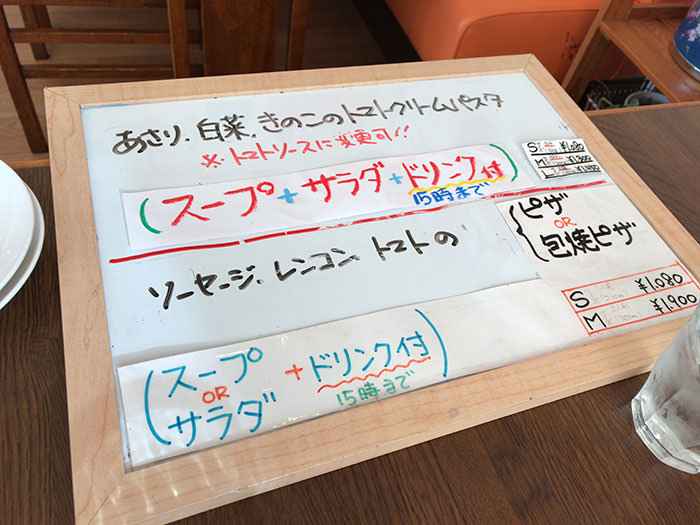 あさり、白菜、きのこのトマトクリームパスタ
※トマトソースに変更可!!
(スープ+サラダ+ドリンク付)
15時まで
S ¥1,080
M
L
ソーセージ、レンコン、トマトの
ピザ
OR
包焼ピザ
S ¥1,080
M ¥1,900
(スープ OR サラダ +ドリンク付)
15時まで